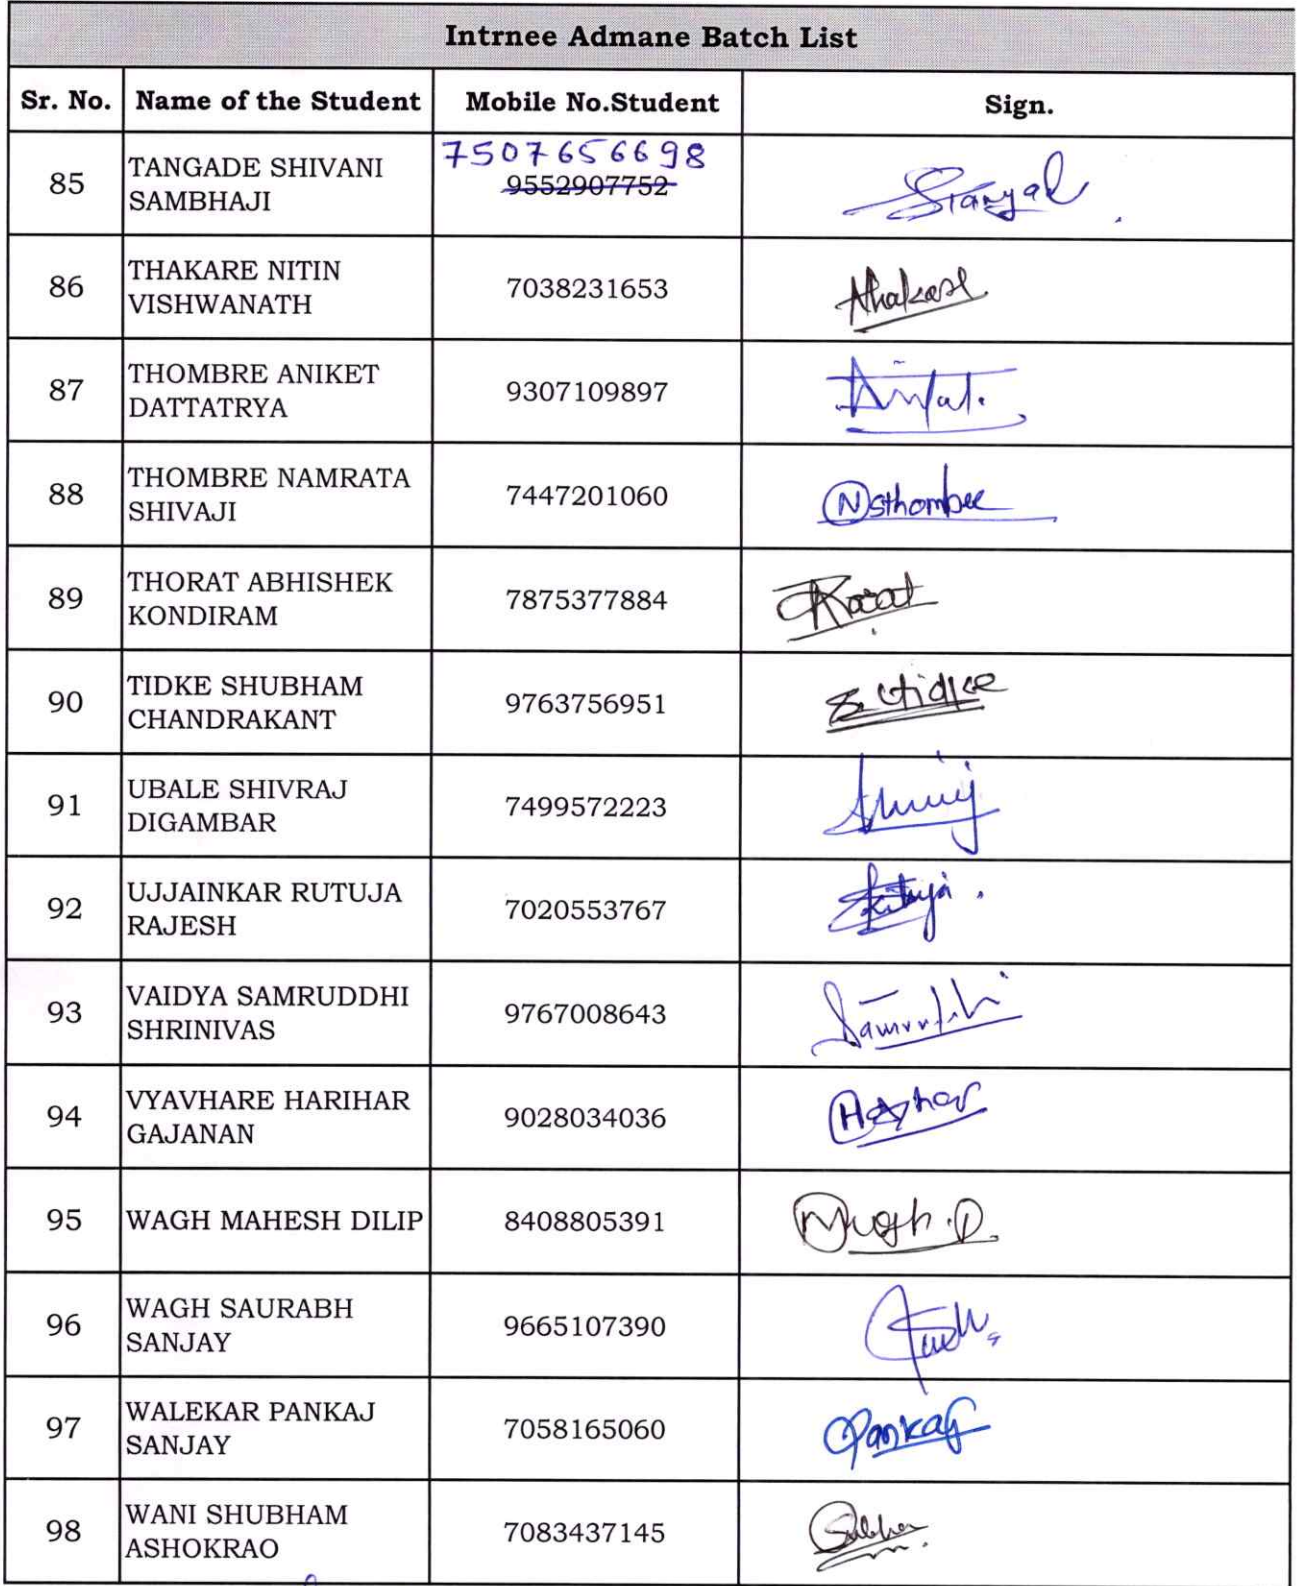 Intrnee Admane Batch List
Sr. No. Name of the Student Mobile No.Student Sign.
7507656698
85 TANGADE SHIVANI SAMBHAJI 9552907752
86 THAKARE NITIN VISHWANATH 7038231653 Thakare
87 THOMBRE ANIKET DATTATRYA 9307109897
88 THOMBRE NAMRATA SHIVAJI 7447201060 Nsthombre
89 THORAT ABHISHEK KONDIRAM 7875377884
90 TIDKE SHUBHAM CHANDRAKANT 9763756951 S.Ctidke
91 UBALE SHIVRAJ DIGAMBAR 7499572223
92 UJJAINKAR RUTUJA RAJESH 7020553767
93 VAIDYA SAMRUDDHI SHRINIVAS 9767008643
94 VYAVHARE HARIHAR GAJANAN 9028034036
95 WAGH MAHESH DILIP 8408805391
96 WAGH SAURABH SANJAY 9665107390
97 WALEKAR PANKAJ SANJAY 7058165060 Pankaj
98 WANI SHUBHAM ASHOKRAO 7083437145